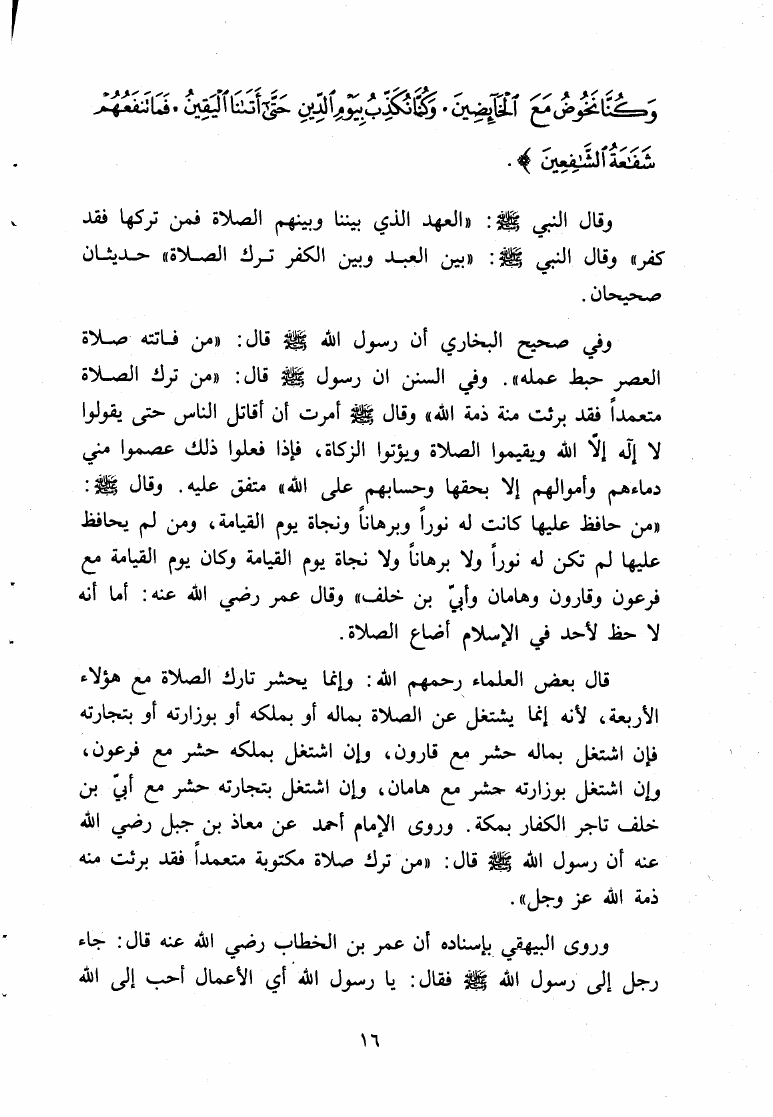 وَكُنَّا نَخُوضُ مَعَ ٱلْخَآئِضِينَ . وَكُنَّا نُكَذِّبُ بِيَوْمِ ٱلدِّينِ حَتَّىٰٓ أَتَىٰنَا ٱلْيَقِينُ . فَمَا تَنفَعُهُمْ
شَفَٰعَةُ ٱلشَّٰفِعِينَ ﴾ .
وقال النبي ﷺ : «العهد الذي بيننا وبينهم الصلاة فمن تركها فقد
كفر» وقال النبي ﷺ : «بين العبد وبين الكفر ترك الصلاة» حديثان
صحيحان .
وفي صحيح البخاري أن رسول الله ﷺ قال : «من فاتته صلاة
العصر حبط عمله» . وفي السنن ان رسول ﷺ قال : «من ترك الصلاة
متعمداً فقد برئت منة ذمة الله» وقال ﷺ أمرت أن أقاتل الناس حتى يقولوا
لا إلٓه إلاّ الله ويقيموا الصلاة ويؤتوا الزكاة ، فإذا فعلوا ذلك عصموا مني
دماءهم وأموالهم إلا بحقها وحسابهم على الله» متفق عليه . وقال ﷺ :
«من حافظ عليها كانت له نوراً وبرهاناً ونجاة يوم القيامة ، ومن لم يحافظ
عليها لم تكن له نوراً ولا برهاناً ولا نجاة يوم القيامة وكان يوم القيامة مع
فرعون وقارون وهامان وأبيّ بن خلف» وقال عمر رضي الله عنه : أما أنه
لا حظ لأحد في الإسلام أضاع الصلاة .
قال بعض العلماء رحمهم الله : وإنما يحشر تارك الصلاة مع هؤلاء
الأربعة ، لأنه إنما يشتغل عن الصلاة بماله أو بملكه أو بوزارته أو بتجارته
فإن اشتغل بماله حشر مع قارون ، وإن اشتغل بملكه حشر مع فرعون ،
وإن اشتغل بوزارته حشر مع هامان ، وإن اشتغل بتجارته حشر مع أبيّ بن
خلف تاجر الكفار بمكة . وروى الإمام أحمد عن معاذ بن جبل رضي الله
عنه أن رسول الله ﷺ قال : «من ترك صلاة مكتوبة متعمداً فقد برئت منه
ذمة الله عز وجل» .
وروى البيهقي بإسناده أن عمر بن الخطاب رضي الله عنه قال : جاء
رجل إلى رسول الله ﷺ فقال : يا رسول الله أي الأعمال أحب إلى الله
١٦